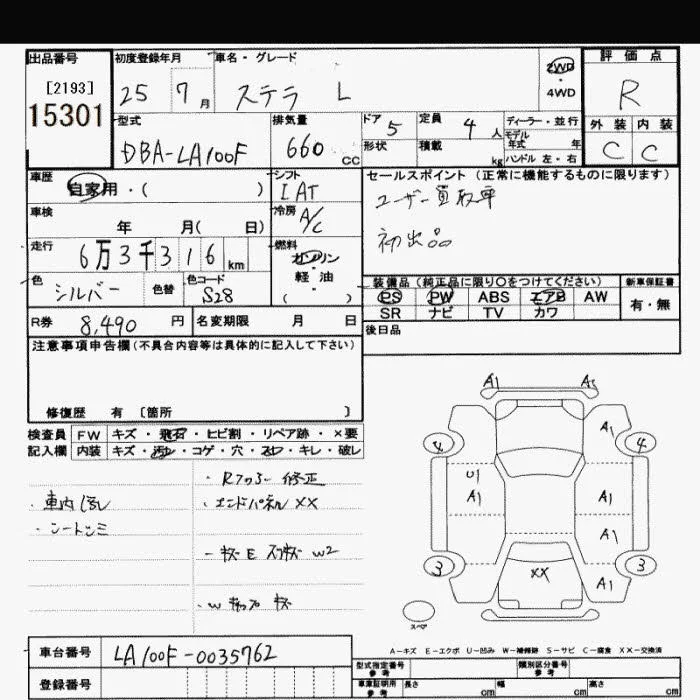 出品番号
[2193]
15301
初度登録年月
25 7月
車名・グレード
ステラ L
2WD
・
4WD
評価点
R
外装 内装
C C
型式
DBA-LA100F
排気量
660 cc
ドア 5
定員 4人
形状
積載 kg
ディーラー・並行
モデル年式 年
ハンドル 左・右
車歴
自家用・( )
シフト
IAT
車検
年 月( 日)
冷房
A/C
走行
6万3千316km
燃料
ガソリン
・
軽油
( )
色
シルバー
色替
色コード
S28
R券 8,490円
名変期限 月 日
セールスポイント(正常に機能するものに限ります)
ユーザー買取車
初出品
装備品(純正品に限り○をつけてください)
PS PW ABS エアB AW
SR ナビ TV カワ
新車保証書
有・無
後日品
注意事項申告欄(不具合内容等は具体的に記入して下さい)
修復歴 有 〔箇所 〕
検査員記入欄
FW キズ・飛石・ヒビ割・リペア跡・×要
内装 キズ・汚レ・コゲ・穴・スレ・キレ・破レ
・Rフロアー修正
・車内汚レ
・エンドパネルXX
・シートシミ
A1
4
4
A1
U1
A1
A1
A1
3
3
A1
XX
スペア
A-キズ E-エクボ U-凹み W-補修跡 S-サビ C-腐食 XX-交換済
車台番号 LA100F-0035762
登録番号
型式指定番号
参考
類別区分番号
参考
車庫証明用
参考
長さ cm
幅 cm
高さ cm